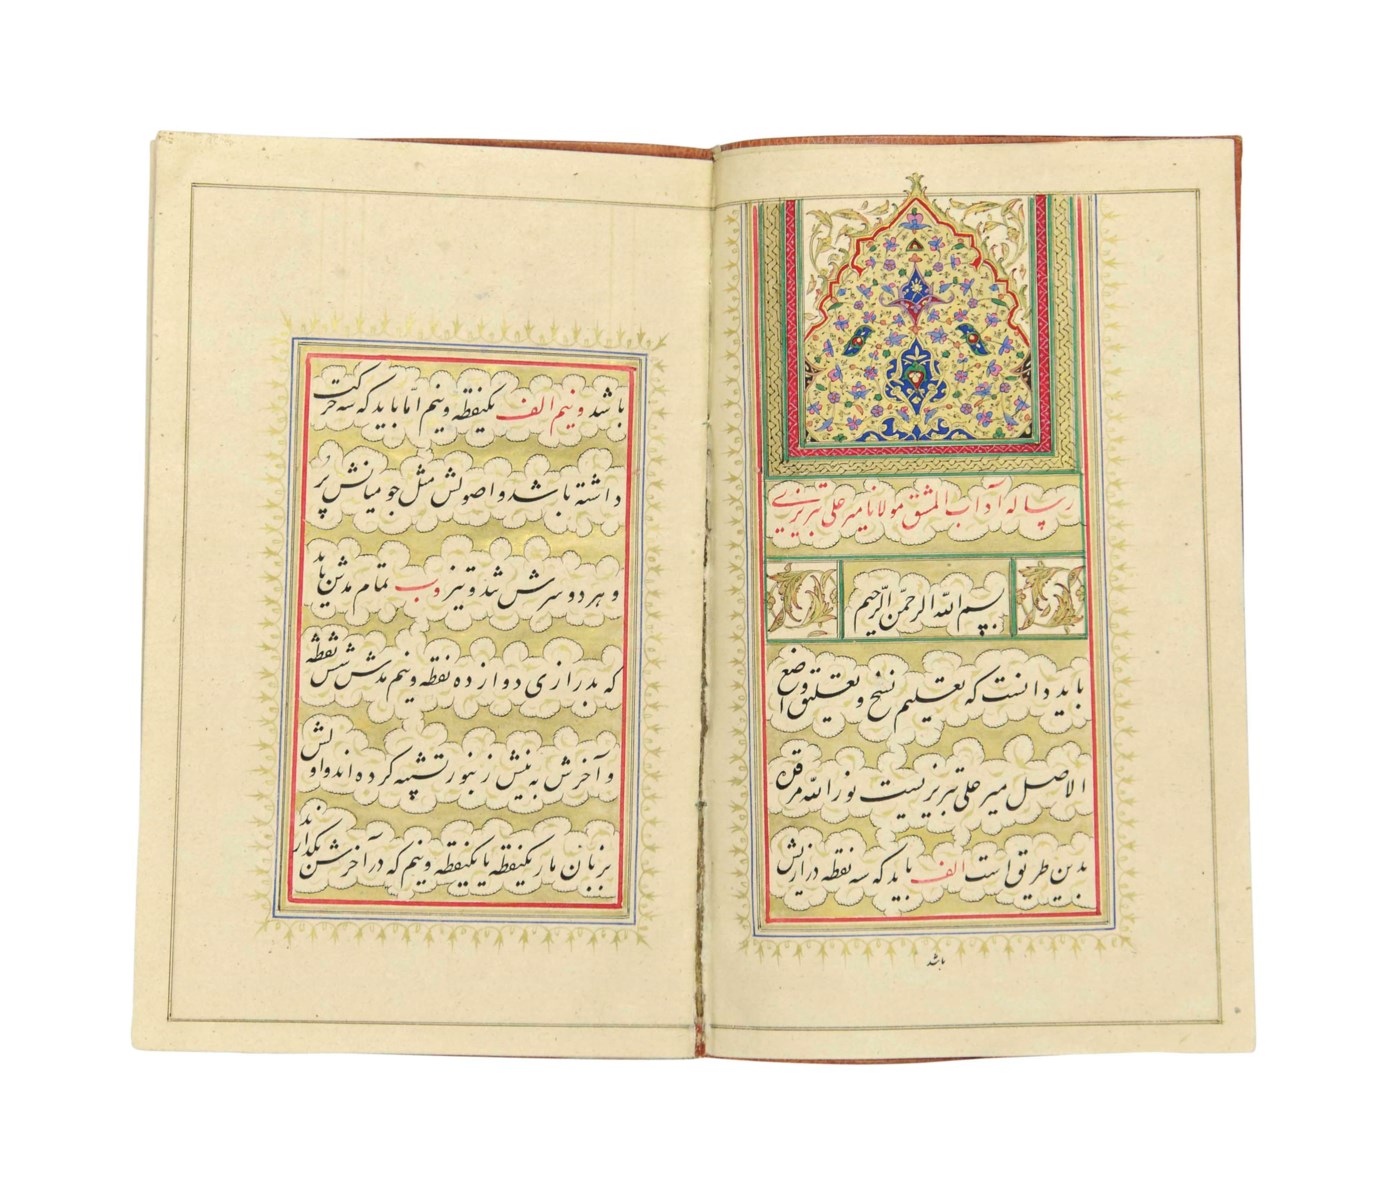 رساله آداب المشق مولانا میر علی تبریزی
بسم الله الرحمن الرحیم
باید دانست که تعلیم نسخ و تعلیق واضع
الاصل میر علی تبریزیست نور الله مرقده
بدین طریق است الف باید که سه نقطه درازیش
باشد
باشد و نیم الف یکنقطه و نیم اما باید که سه حرکت
داشته باشد و اصولش مثل جو میانش پر
و هر دو سرش تند و تیز و ب تمام مدش باید
که بدرازی دوازده نقطه و نیم مدش شش نقطه
و آخرش به نیش زنبور تشبیه کرده اند و اولش
بزبان مار یکنقطه یا یکنقطه و نیم که در آخرش بگذارند